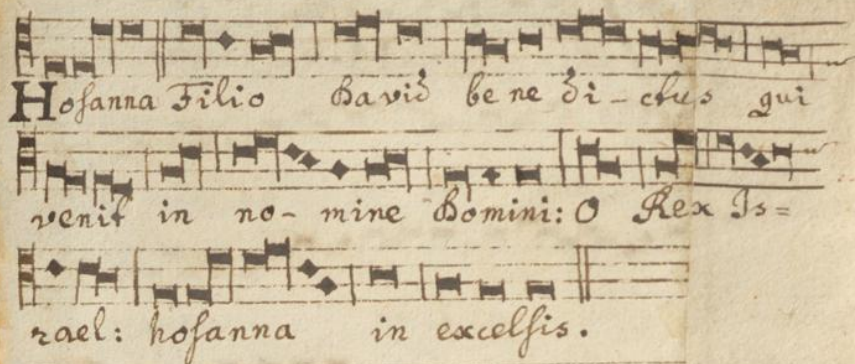 Hosanna Filio David be ne di - ctus qui
venit in no - mine Domini: O Rex Is=
rael: hosanna in excelsis.